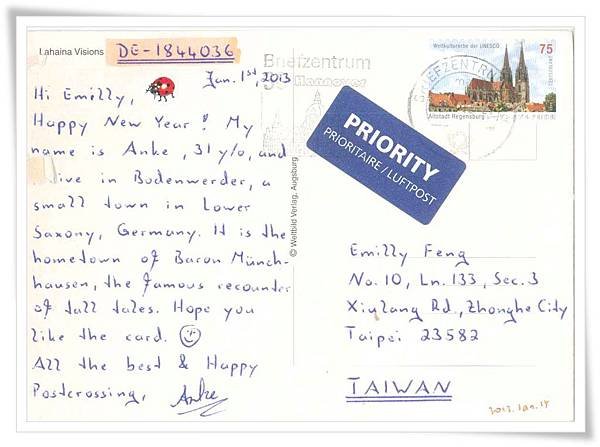 Lahaina Visions
DE-1844036
Jan. 1st, 2013
Hi Emilly,
Happy New Year! My
name is Anke, 31 y/o, and
live in Bodenwerder, a
small town in Lower
Saxony, Germany. It is the
hometown of Baron Münch-
hausen, the famous recounter
of tall tales. Hope you
like the card. ☺
All the best & Happy
Postcrossing, Anke
© Weltbild Verlag, Augsburg
Briefzentrum
30 Hannover
BRIEFZENTRUM
Weltkulturerbe der UNESCO
75
Altstadt Regensburg
PRIORITY
PRIORITAIRE / LUFTPOST
Emilly Feng
No. 10, Ln. 133, Sec. 3
Xiulang Rd., Zhonghe City
Taipei 23582
TAIWAN